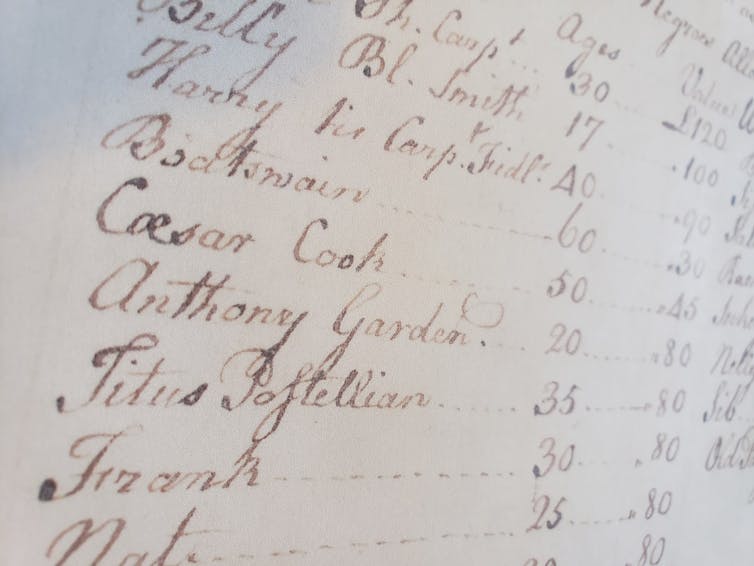 Negroes
Ages Value
Sh. Carpt 30 £120
Billy Bl. Smith 17 100
Harry his Carpt Fidlr 40 90
Boatswain 60 30
Cæsar Cook 50 45
Anthony Garden. 20 80
Titus Postellian 35 80
Frank 30 80
Nat 25 80
80
Sib
Old